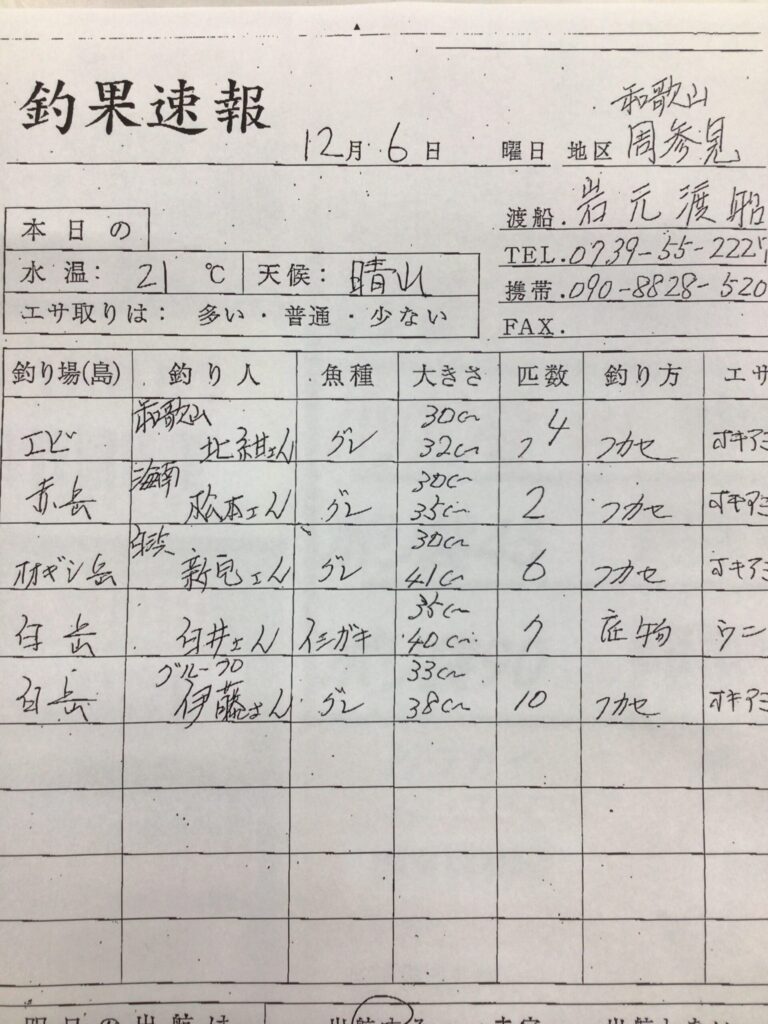 釣果速報
12月 6日 曜日 地区 和歌山 周参見
渡船. 岩元渡船
TEL. 0739-55-222
携帯. 090-8828-520
FAX.
本日の
水温: 21 ℃ 天候: 晴
エサ取りは: 多い・普通・少ない
釣り場(島) 釣り人 魚種 大きさ 匹数 釣り方 エサ
和歌山 30cm
エビ さん グレ 32cm 4 フカセ オキアミ
海南 30cm
赤岳 松本さん グレ 35cm 2 フカセ オキアミ
30cm
オオギシ岳 新見さん グレ 41cm 6 フカセ オキアミ
35cm
白岳 白井さん イシガキ 40cm 底物 ウニ
グループ 33cm
白岳 伊藤さん グレ 38cm 10 フカセ オキアミ
明日の出航は 出航する 未定 出航しない